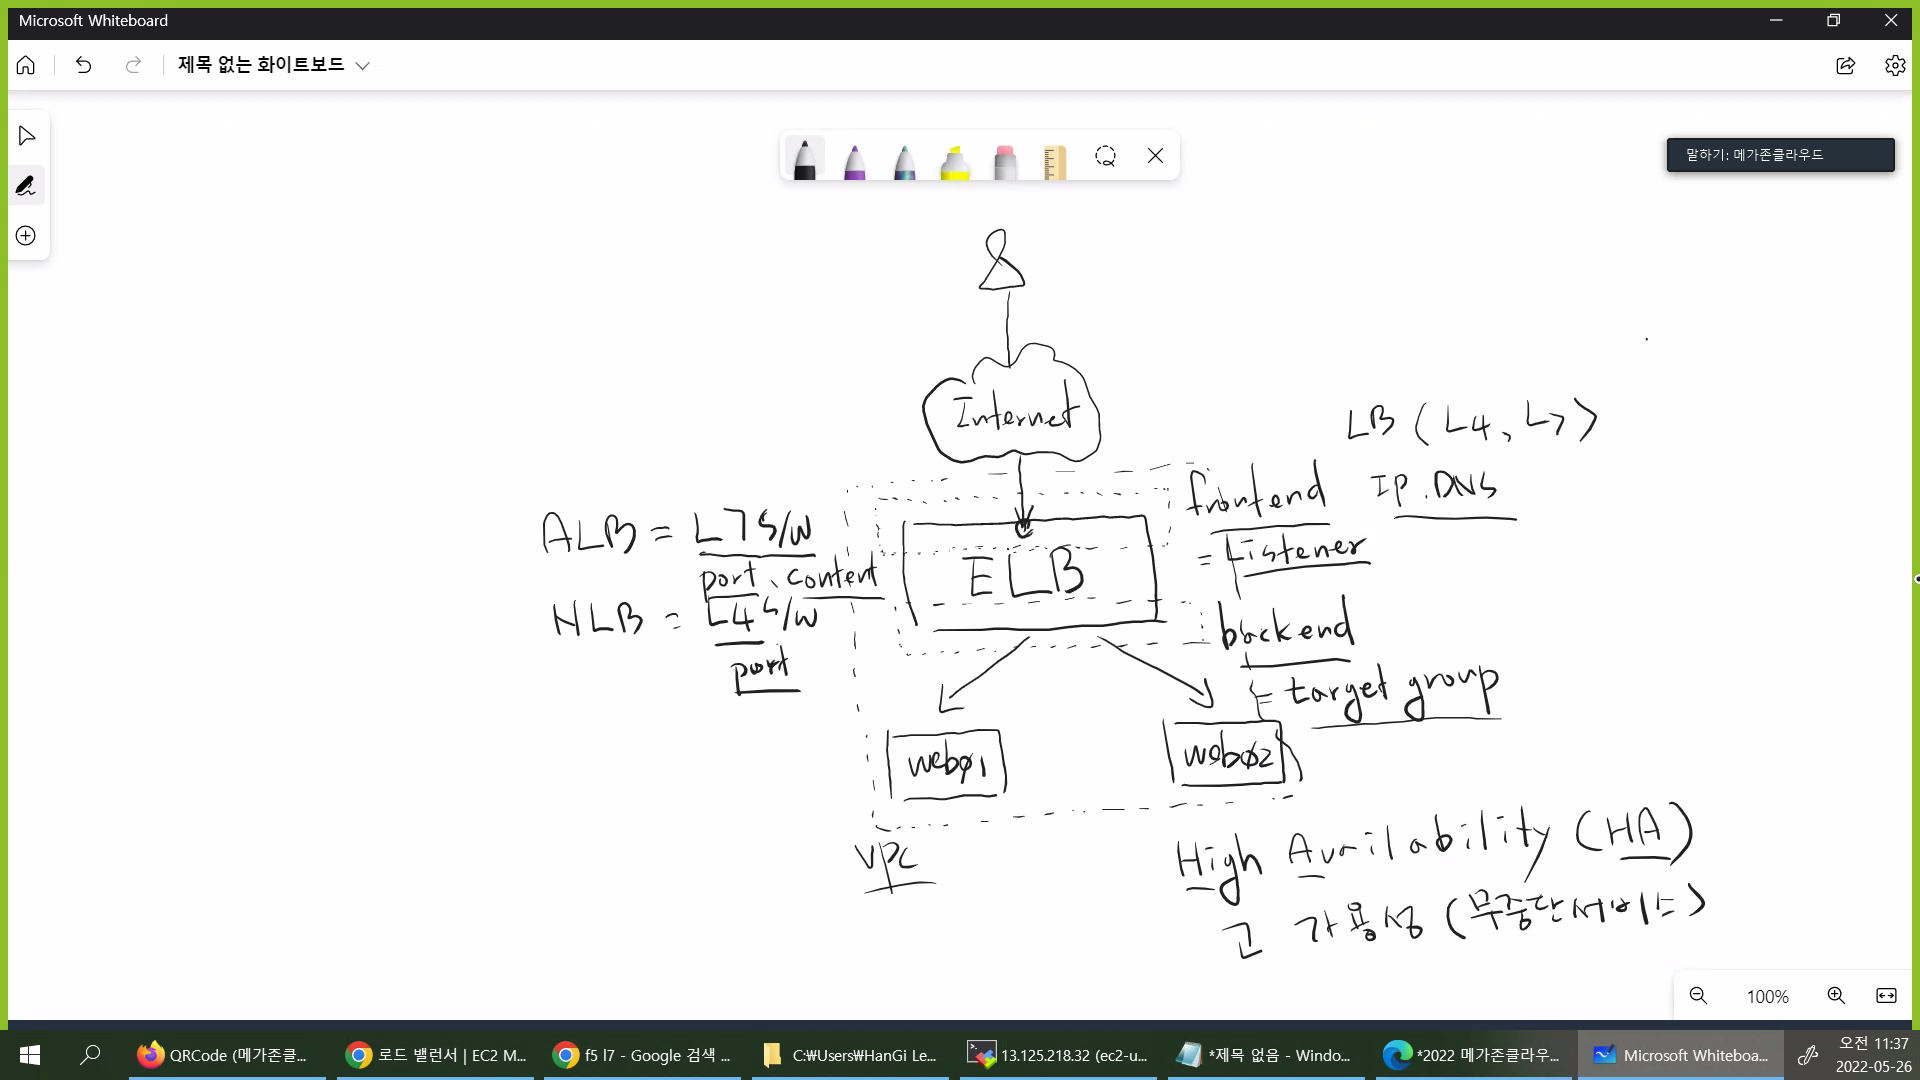 Microsoft Whiteboard
제목 없는 화이트보드
말하기: 메가존클라우드
Internet
LB (L4, L7)
IP. DNS
frontend
= Listener
ALB = L7 S/W
port, content
NLB = L4 S/W
port
ELB
backend
= target group
web01
web02
VPC
High Availability (HA)
고 가용성 (무중단서비스)
100%
QRCode (메가존클...
로드 밸런서 | EC2 M...
f5 l7 - Google 검색 ...
C:₩Users₩HanGi Le...
13.125.218.32 (ec2-u...
*제목 없음 - Windo...
*2022 메가존클라우...
Microsoft Whiteboa...
오전 11:37
2022-05-26